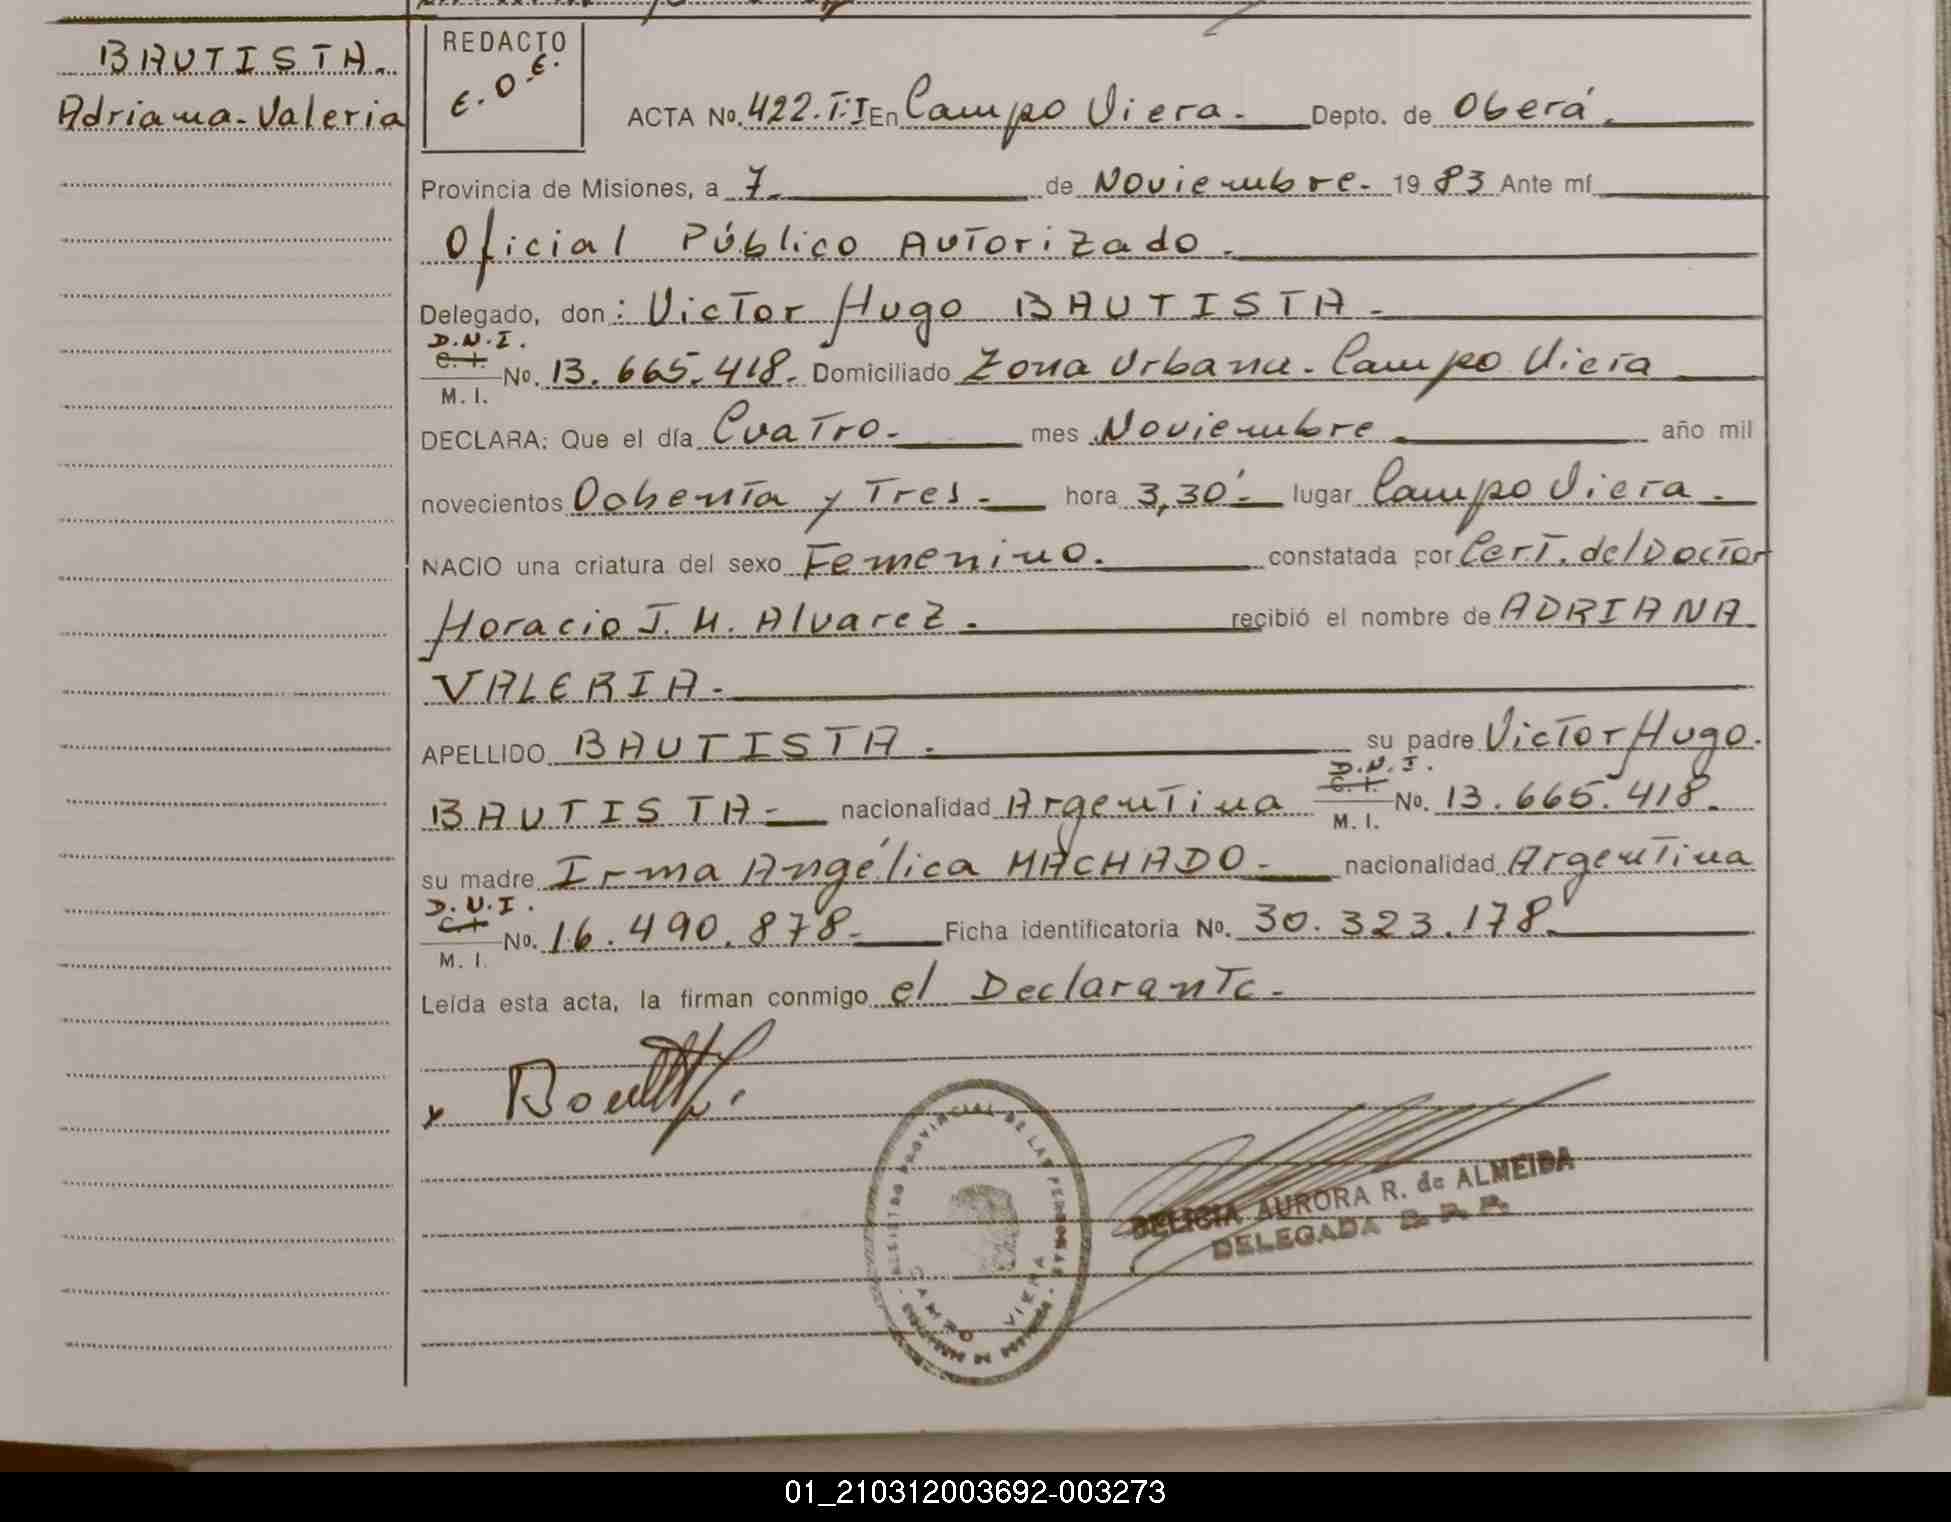 BAUTISTA.
Adriana-Valeria
REDACTO
E.O.E.
ACTA No. 422.T:I En Campo Viera. Depto. de Oberá.
Provincia de Misiones, a 7. de Noviembre. 1983 Ante mí
Oficial Público Autorizado.
Delegado, don: Victor Hugo BAUTISTA.
D.N.I.
C.I.
M. I. No. 13.665.418. Domiciliado Zona Urbana. Campo Viera
DECLARA: Que el día Cuatro. mes Noviembre año mil
novecientos Ochenta y Tres. hora 3,30'. lugar Campo Viera.
NACIO una criatura del sexo Femenino. constatada por Cert. del Doctor
Horacio J. M. Alvarez. recibió el nombre de ADRIANA
VALERIA.
APELLIDO BAUTISTA. su padre Victor Hugo.
D.N.I.
C.I.
BAUTISTA nacionalidad Argentina M. I. No. 13.665.418.
su madre Irma Angélica MACHADO. nacionalidad Argentina
D.N.I.
C.I.
M. I. No. 16.490.878. Ficha identificatoria No. 30.323.178.
Leída esta acta, la firman conmigo el Declarante.
x
REGISTRO PROVINCIAL DE LAS PERSONAS
CAMPO VIERA
DELICIA AURORA R. de ALMEIDA
DELEGADA R. P. P.
01_210312003692-003273